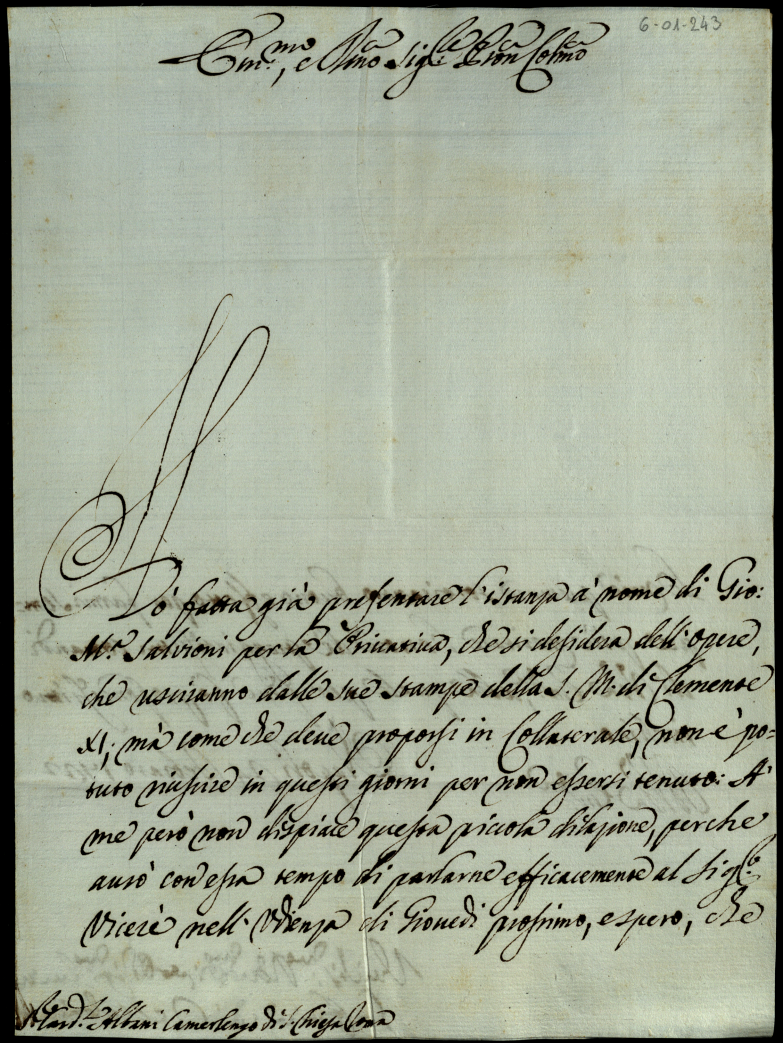 6-01-243
Em.mo, e R.mo Sig.re P.ron Col.mo
Hò fatta già presentare l'istanza à nome di Gio:
M.a Salvioni per la Privativa, che si desidera dell'opere,
che usciranno dalle sue stampe della S. M. di Clemente
XI; mà come che deve proporsi in Collaterale, non è po=
tuto riuscire in questi giorni per non essersi tenuto: A'
me però non dispiace questa piccola dilazione, perche
avrò con essa tempo di parlarne efficacemente al Sig.r
Vicerè nell'Udienza di Giovedì prossimo, e spero, che
Card.l Albani Camerlengo di S. Chiesa Roma